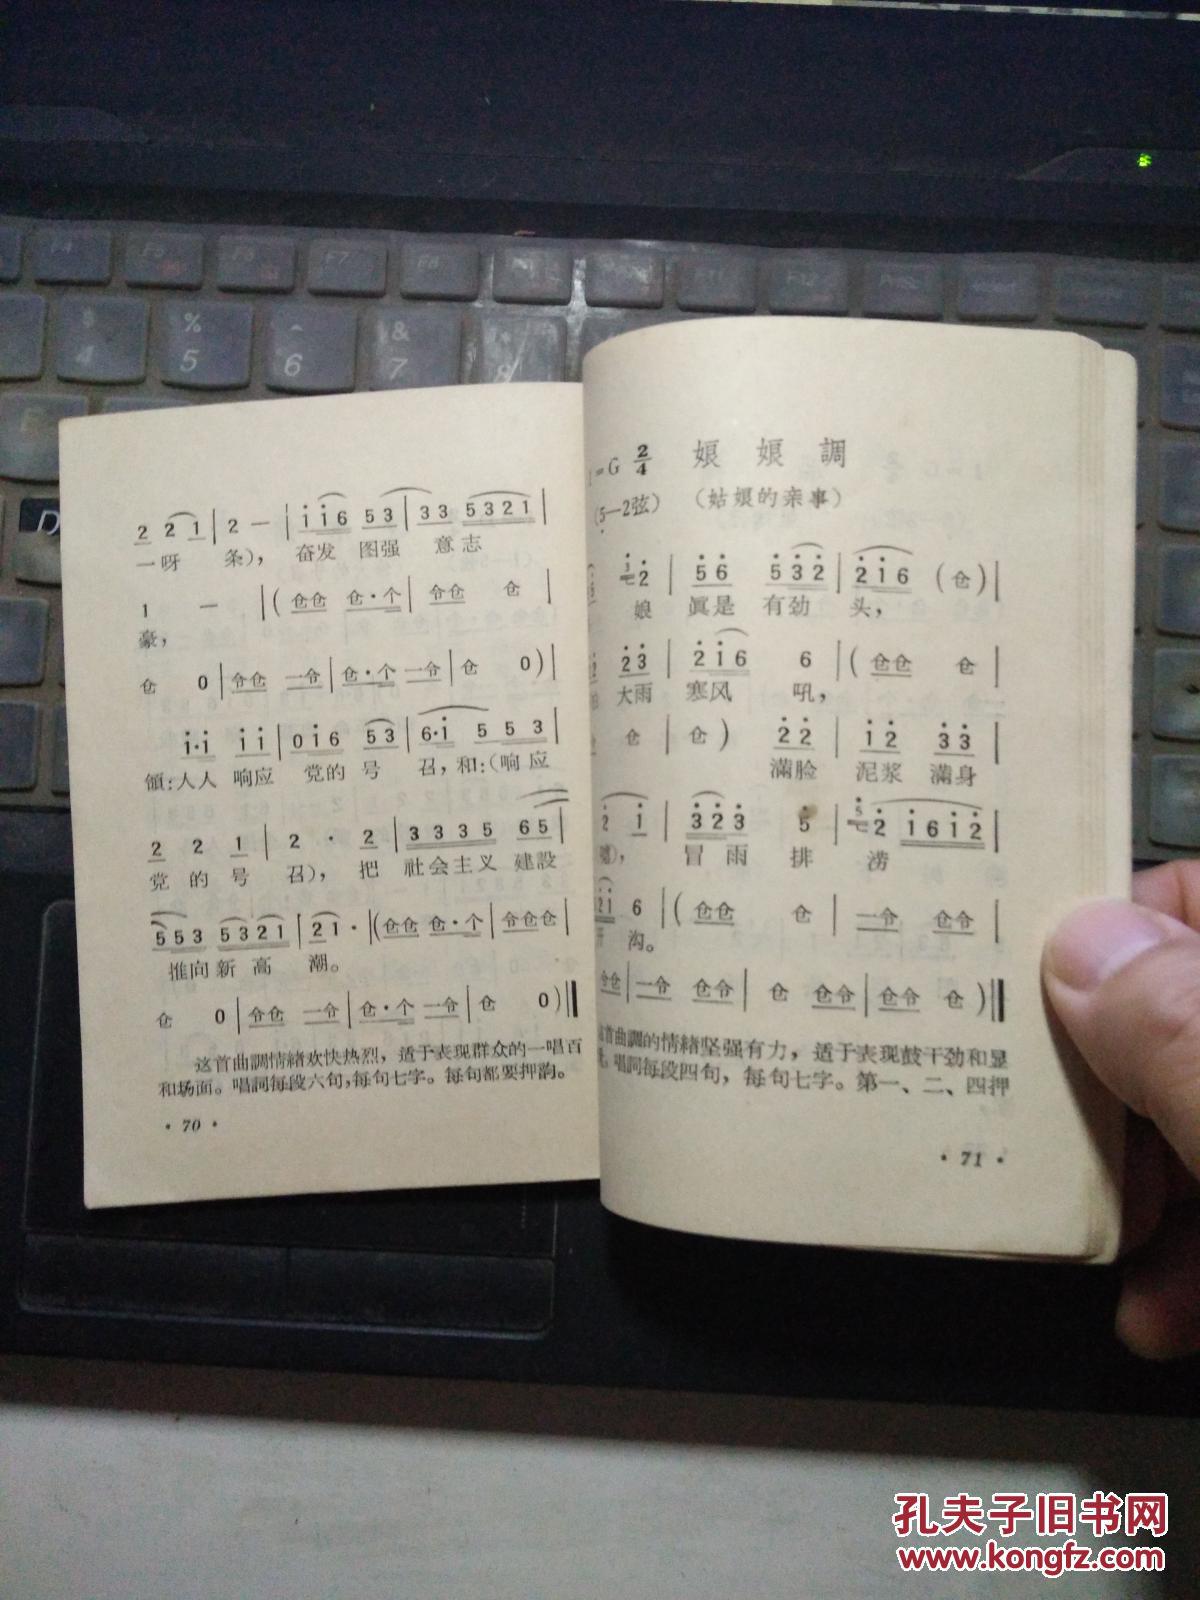 2 2 1 | 2 — | i i 6 5 3 | 3 3 5 3 2 1 |
一呀 条), 奋发 图强 意志
1 — | ( 仓仓 仓·个 | 令仓 仓 |
豪,
仓 0 | 令仓 一令 | 仓·个 一令 | 仓 0 ) |
i·i i i | 0 i 6 5 3 | 6·i 5 5 3 |
領:人人 响应 党的 号 召, 和:(响 应
2 2 1 | 2 · 2 | 3 3 3 5 6 5 |
党 的 号 召), 把 社会主义 建設
5 5 3 5 3 2 1 | 2 1 · | ( 仓仓 仓·个 | 令仓仓 |
推向 新 高 潮。
仓 0 | 令仓 一令 | 仓·个 一令 | 仓 0 ) ‖
这首曲調情緒欢快热烈，适于表现群众的一唱百
和场面。唱詞每段六句，每句七字。每句都要押韵。
· 70 ·
娘 娘 調
1=G 2/4
(5—2弦) (姑娘的亲事)
2 | 5 6 5 3 2 | 2 i 6 (仓) |
娘 眞是 有劲 头，
2 3 | 2 i 6 6 | ( 仓仓 仓 |
大雨 寒风 吼，
仓 | 仓 ) 2 2 | i 2 3 3 |
滿脸 泥浆 滿身
2 i | 3 2 3 5 | 2 i 6 i 2 |
冒 雨 排 涝
2 i 6 | ( 仓仓 仓 | 一令 仓令 |
沟。
令仓 | 一令 仓令 | 仓 仓令 | 仓令 仓 ) ‖
首曲調的情緒坚强有力，适于表现鼓干劲和显
唱詞每段四句，每句七字。第一、二、四押
· 71 ·
孔夫子旧书网
www.kongfz.com